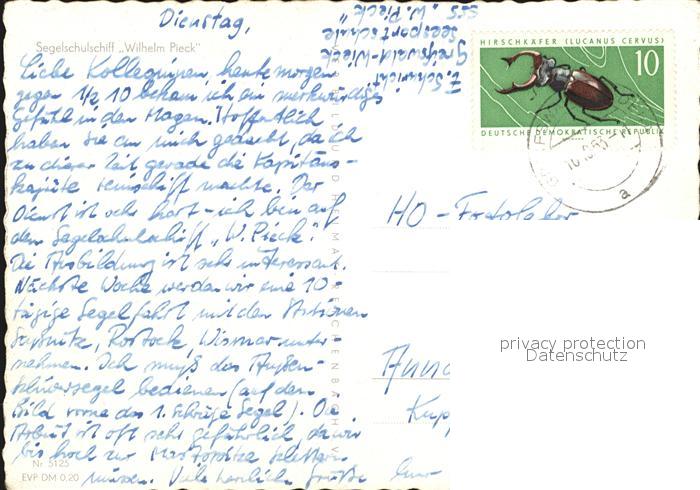 Dienstag,
Segelschulschiff „Wilhelm Pieck"
Liebe Kolleginnen, heute morgen
gegen 1/2 10 bekam ich ein merkwürdiges
Gefühl in den Magen. Hoffentlich
haben Sie an mich gedacht, da ich
zu dieser Zeit gerade die Kapitäns-
kajüte reinschiff machte. Der
Dienst ist sehr hart - ich bin auf
dem Segelschulschiff „W. Pieck".
Die Ausbildung ist sehr interessant.
Nächste Woche werden wir eine 10-
tägige Segelfahrt mit den Stationen
Saßnitz, Rostock, Wismar unter-
nehmen. Ich muß das Außen-
klüversegel bedienen (auf dem
Bild vorne das 1. schräge Segel). Die
Arbeit ist oft sehr gefährlich, da wir
bis hoch zur Mastspitze klettern
müssen. Viele herzliche Grüße
Nr 5125
EVP DM 0,20
Greifswald-Wieck
Seesportschule
SSS „W. Pieck"
HIRSCHKÄFER (LUCANUS CERVUS)
10
DEUTSCHE DEMOKRATISCHE REPUBLIK
a
HO -
privacy protection
Datenschutz